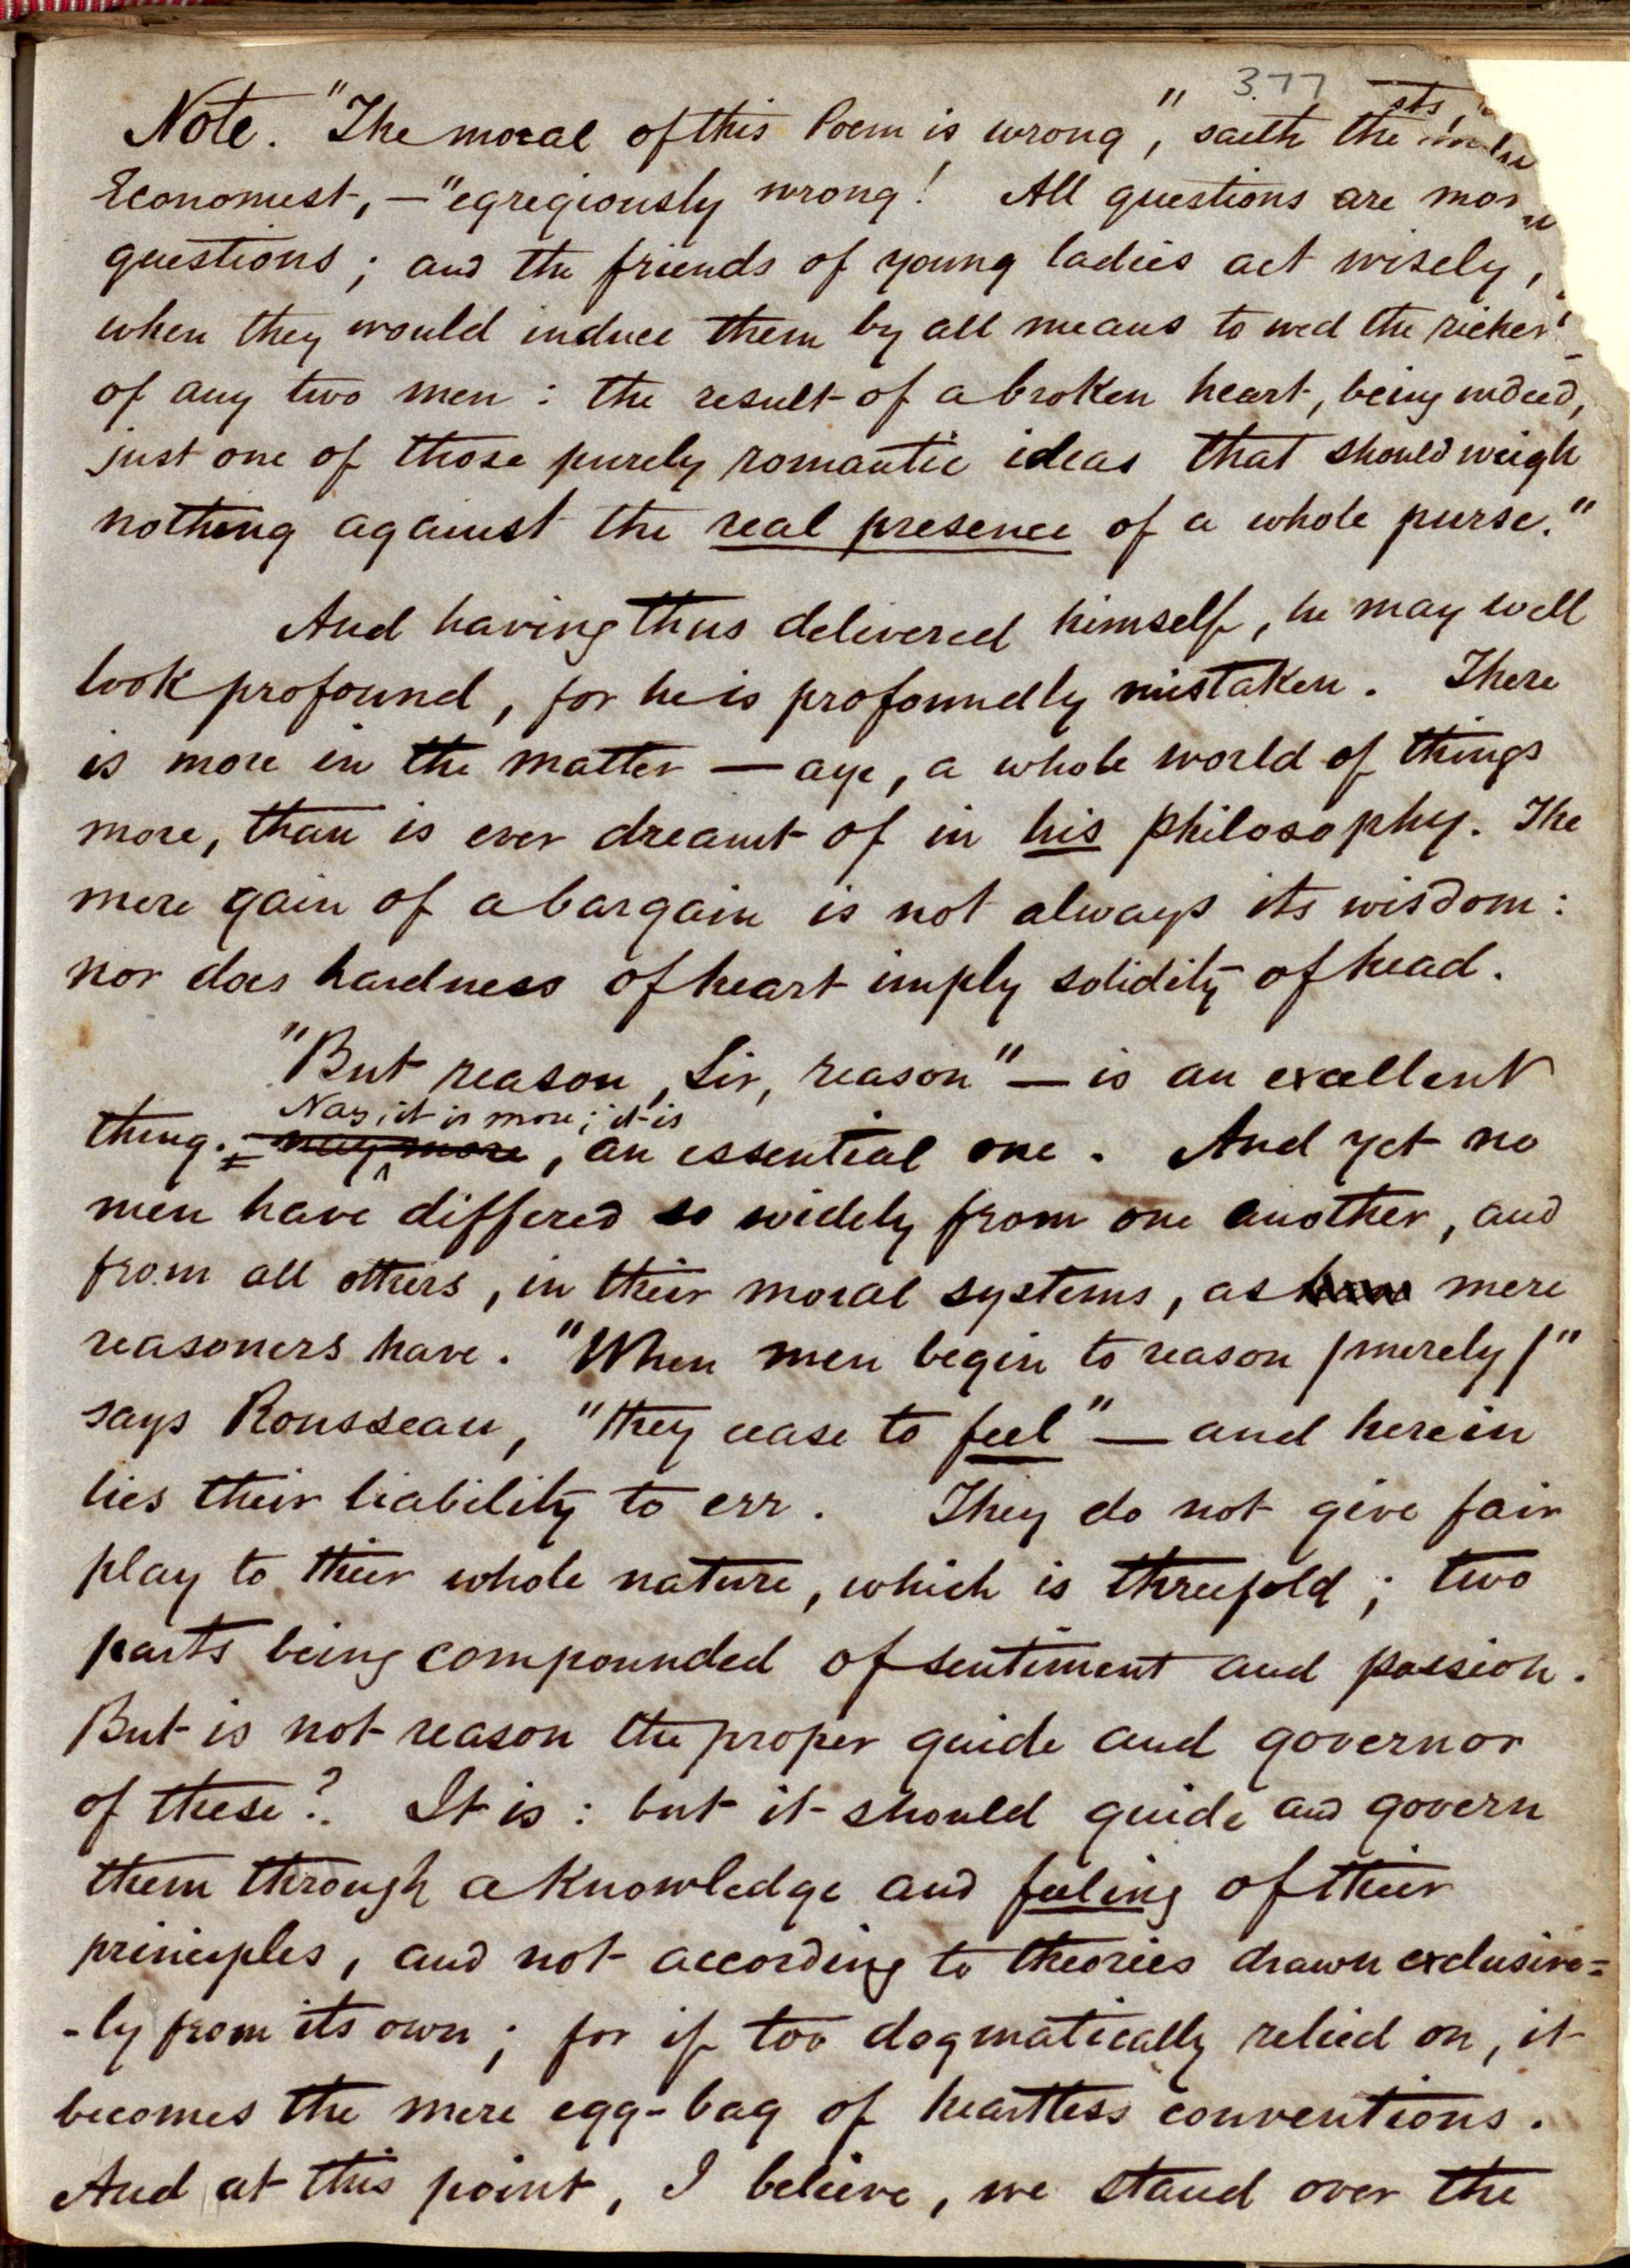 377
Note. "The moral of this Poem is wrong", saith the
Economist, — "egregiously wrong! All questions are
questions; and the friends of young ladies act wisely,
when they would induce them by all means to wed the richer
of any two men: the result of a broken heart, being indeed,
just one of those purely romantic ideas that should weigh
nothing against the real presence of a whole purse."
And having thus delivered himself, he may well
look profound, for he is profoundly mistaken. There
is more in the matter — aye, a whole world of things
more, than is ever dreamt of in his philosophy. The
mere gain of a bargain is not always its wisdom:
nor does hardness of heart imply solidity of head.
"But reason, Sir, reason" — is an excellent
Nay, it is more; it is
thing. — nay more, an essential one. And yet no
men have differed so widely from one another, and
from all others, in their moral systems, as have mere
reasoners have. "When men begin to reason (merely)"
says Rousseau, "they cease to feel" — and herein
lies their liability to err. They do not give fair
play to their whole nature, which is threefold; two
parts being compounded of sentiment and passion.
But is not reason the proper guide and governor
of these? It is: but it should guide and govern
them through a knowledge and feeling of their
principles, and not according to theories drawn exclusive=
-ly from its own; for if too dogmatically relied on, it
becomes the mere egg-bag of heartless conventions.
And at this point, I believe, we stand over the